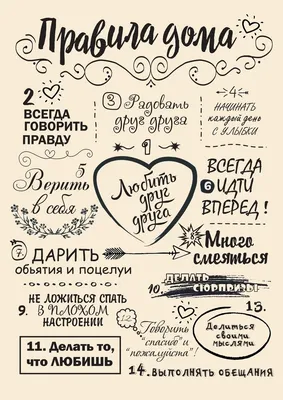 Правила дома
2
ВСЕГДА
ГОВОРИТЬ
ПРАВДУ
3 Радовать
друг друга
4
НАЧИНАТЬ
каждый день
С УЛЫБКИ
1
Любить
друг
друга
5
Верить
в себя
ВСЕГДА
6 ИДТИ
ВПЕРЕД!
7. ДАРИТЬ
обьятия и поцелуи
8.
Много
смеяться
9.
НЕ ЛОЖИТЬСЯ СПАТЬ
В ПЛОХОМ
НАСТРОЕНИИ
10. ДЕЛАТЬ
СЮРПРИЗЫ
11. Делать то,
что ЛЮБИШЬ
12.
Говорить
"спасибо" и
"пожалуйста"!
13.
Делиться
своими
мыслями
14. ВЫПОЛНЯТЬ ОБЕЩАНИЯ